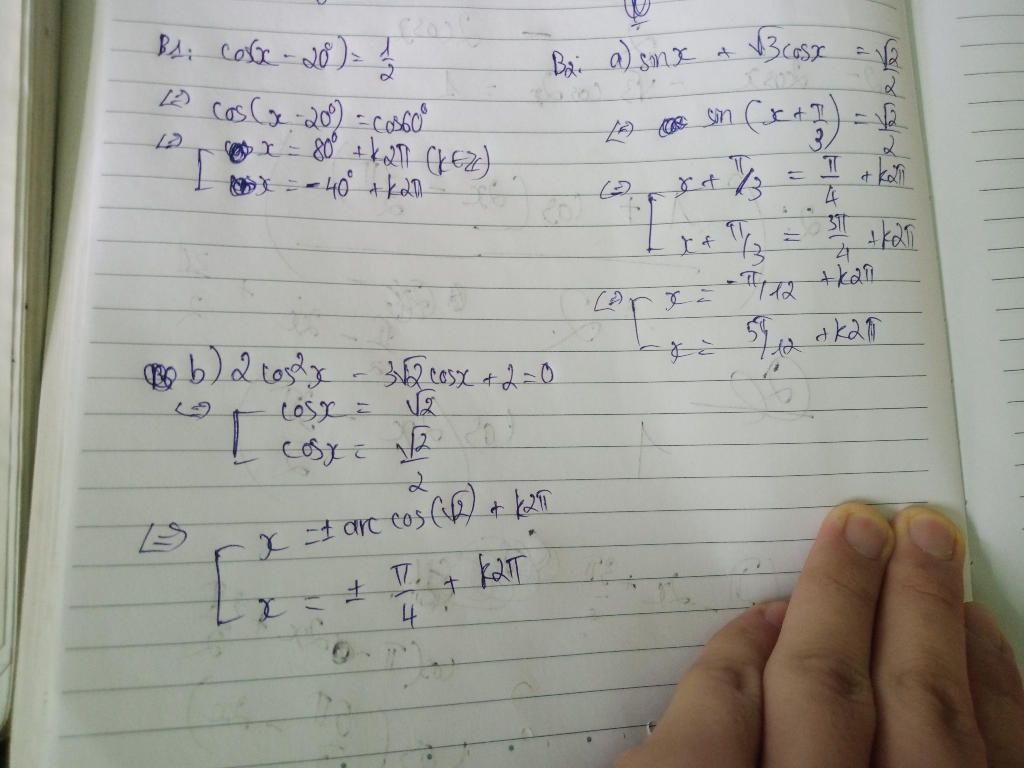 B1: cos(x - 20°) = 1/2
⇔ cos(x - 20°) = cos60°
⇔ [ x = 80° + k2π (k∈Z)
x = -40° + k2π
B2: a) sinx + √3cosx = √2/2
⇔ sin(x + π/3) = √2/2
⇔ [ x + π/3 = π/4 + k2π
x + π/3 = 3π/4 + k2π
⇔ [ x = -π/12 + k2π
x = 5π/12 + k2π
b) 2cos²x - 3√2cosx + 2 = 0
⇔ [ cosx = √2
cosx = √2/2
⇔ [ x = ± arc cos(√2) + k2π
x = ± π/4 + k2π